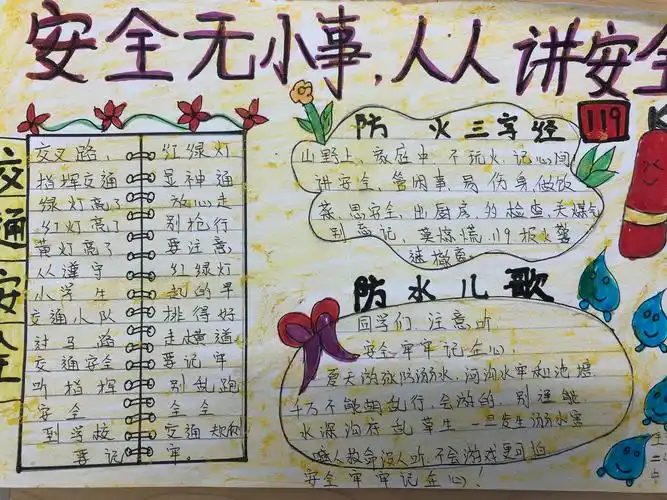 安全无小事，人人讲安全
交通安全
交叉路，红绿灯
指挥交通显神通
绿灯亮了放心走
红灯亮了别抢行
黄灯亮了要注意
人遵守红绿灯
小学生起的早
交通小队排得好
过马路走横道
交通安全要记牢
听指挥别乱跑
安全全全
到学校交通规则
要记牢。
防火三字经
119
山野上，家庭中，不玩火，记心间
讲安全，管闲事，易伤身，做饭
菜，思安全，出厨房，多检查，关煤气
别忘记，莫惊慌，119报火警
速撤离
防水儿歌
同学们，注意听
安全牢牢记在心，
夏天游泳防溺水，河沟水库和池塘
千万不能乱行，会游的，别逞能
水深沟存乱草生 一旦发生溺水害
喊人救命没人听，不会游戏更可怕
安全牢牢记在心！